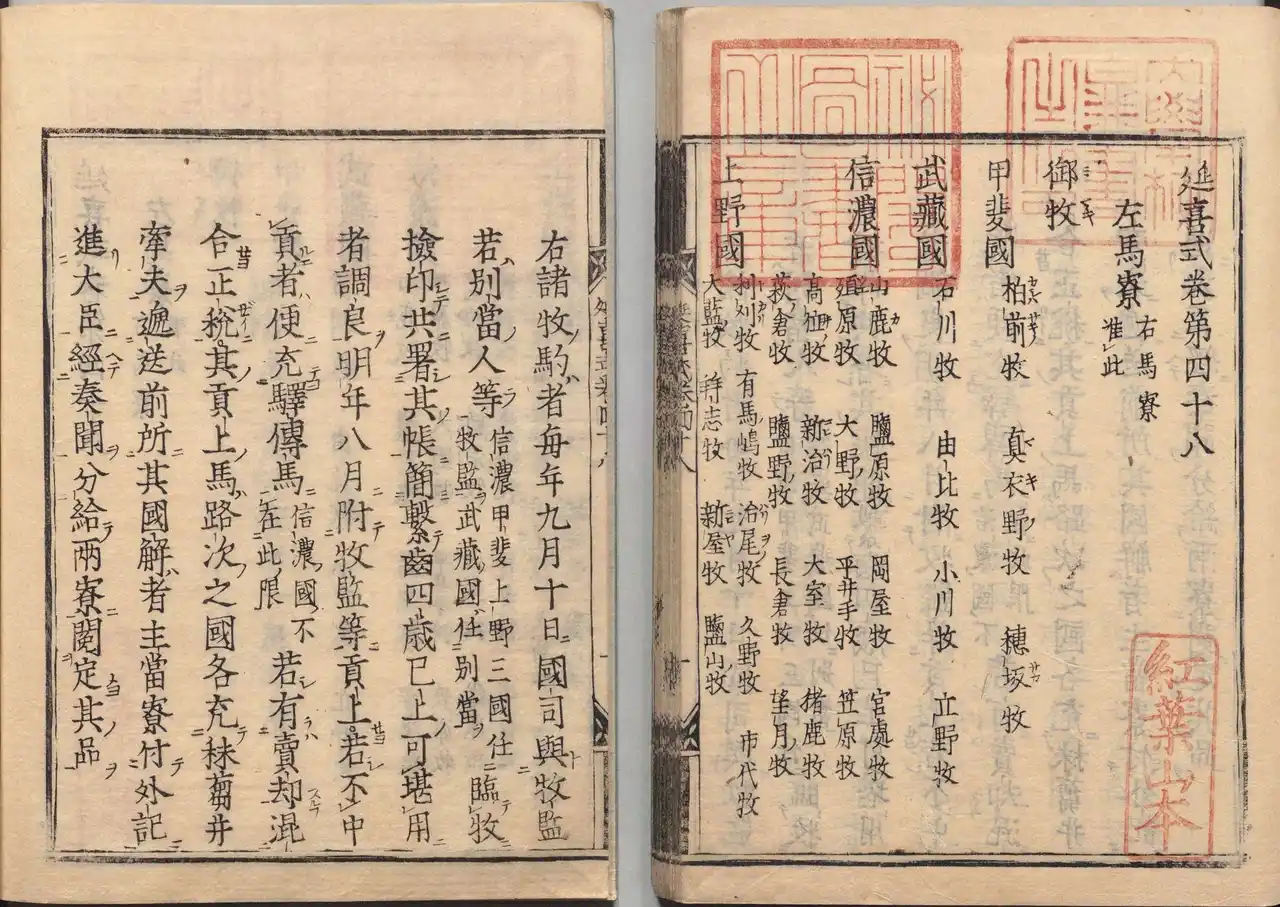 延喜式卷第四十八
左馬寮 右馬寮准此
御牧
甲斐國 柏前牧 真衣野牧 穗坂牧
武藏國 石川牧 由比牧 小川牧 立野牧
信濃國 山鹿牧 鹽原牧 岡屋牧 宮處牧
殖原牧 大野牧 平井手牧 笠原牧
高位牧 新治牧 大室牧 猪鹿牧
萩倉牧 鹽野牧 長倉牧 望月牧
上野國 利刈牧 有馬嶋牧 治尾牧 久野牧 市代牧
大藍牧 拜志牧 新屋牧 鹽山牧
紅葉山本
右諸牧駒者每年九月十日國司與牧監
若別當人等 信濃甲斐上野三國任牧監武藏國任別當 臨牧
撿印共署其帳簡繫齒四歲已上可堪用
者調良明年八月附牧監等貢上若不中
貢者便充驛傳馬 信濃國不在此限 若有賣却混
合正稅其貢上馬路次之國各充秣蒭并
牽夫遞送前所其國解者主當寮付外記
進大臣經奏聞分給兩寮閱定其品